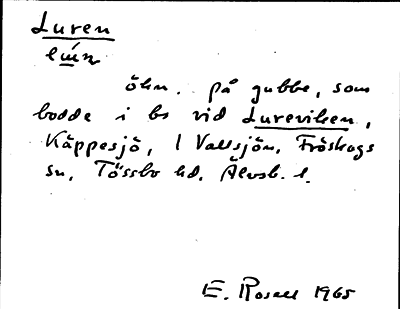 Luren
öhn. på gubbe, som
bodde i bs vid Lureviken,
Käppesjö, l Vallsjön, Fröskogs
sn, Tössbo hd, Älvsb. l.
E. Rosell 1965